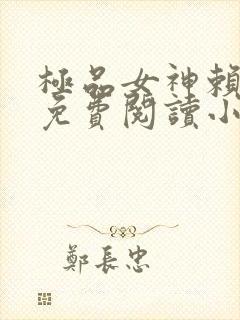 極品女神賴
免費閱讀小
鄭長忠